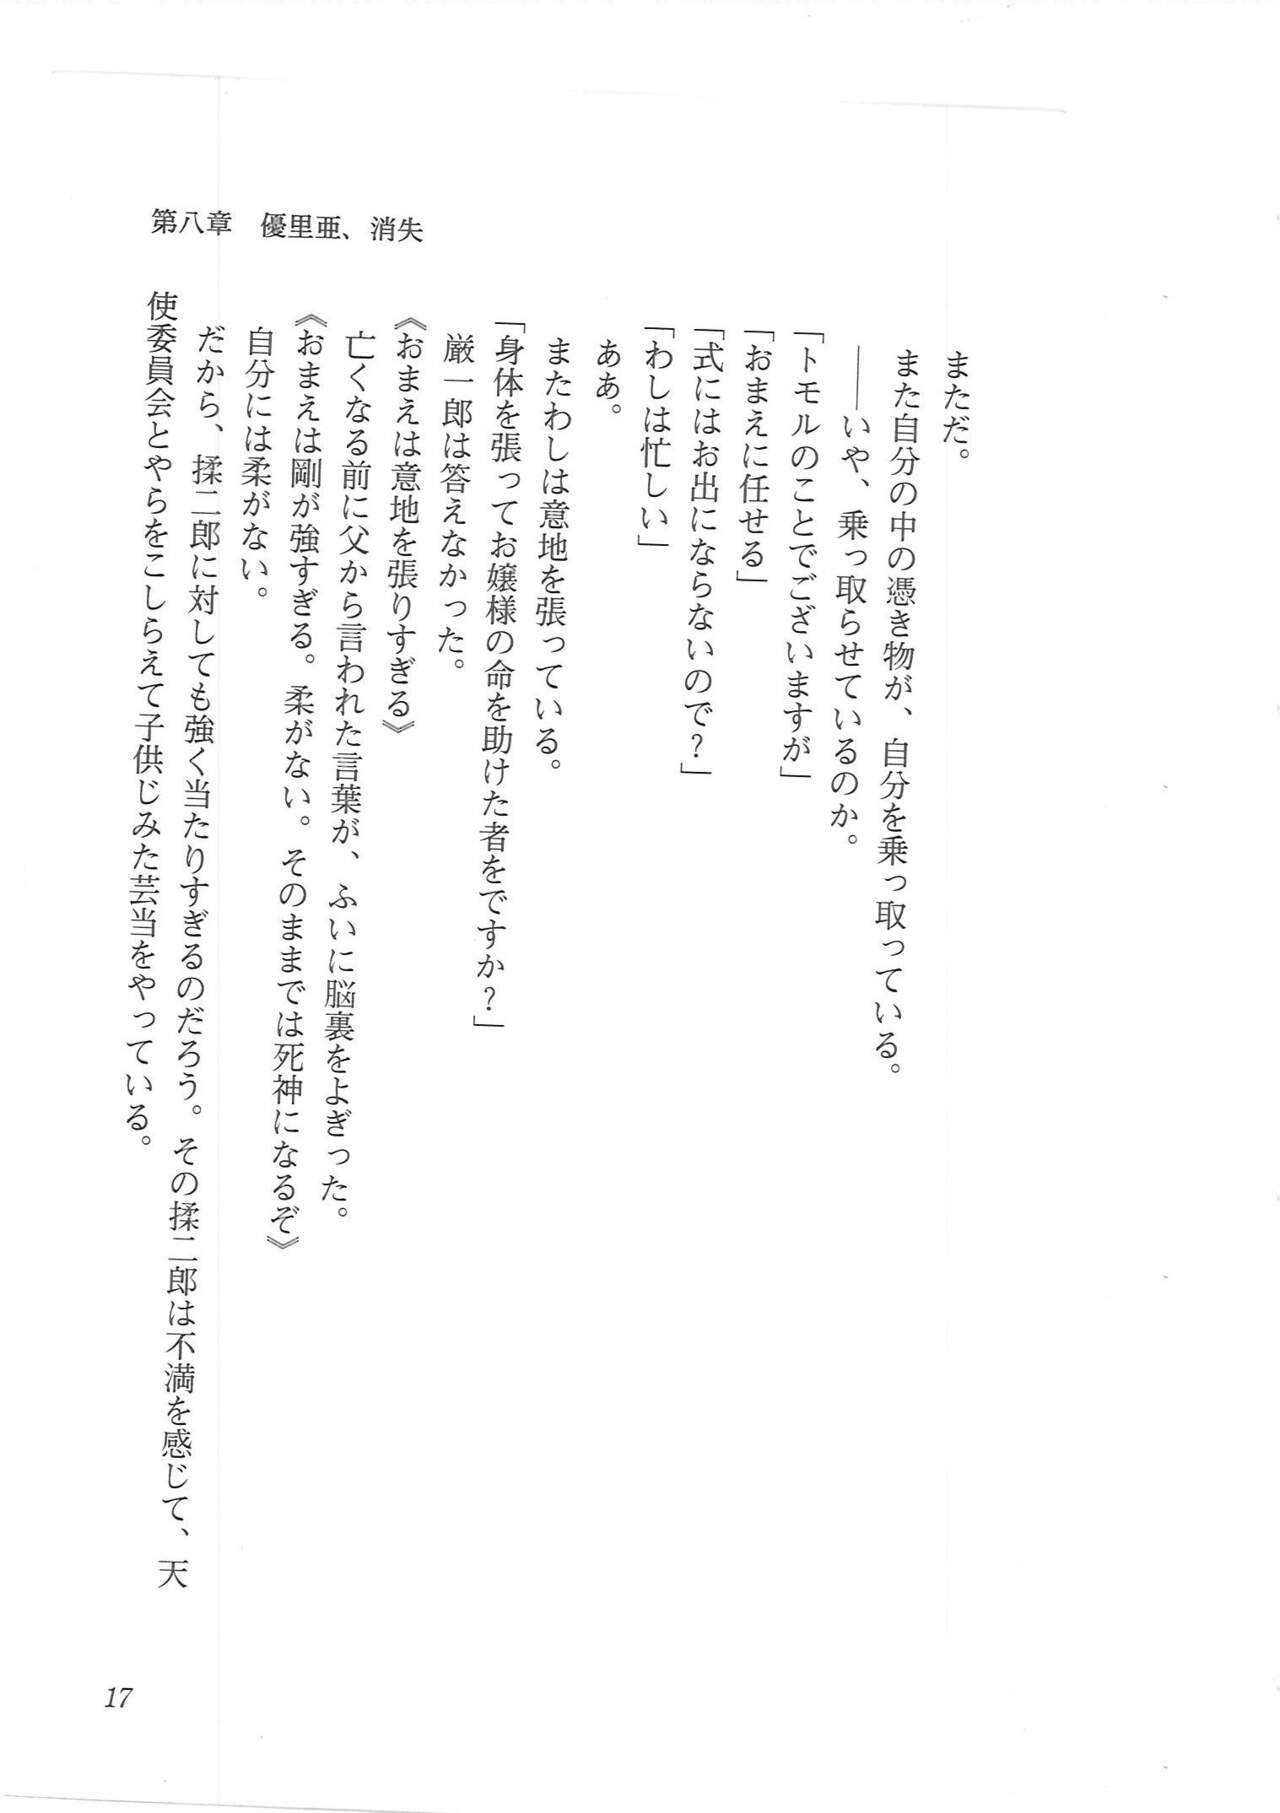 第八章　優里亜、消失
まただ。
また自分の中の憑き物が、自分を乗っ取っている。
――いや、乗っ取らせているのか。
「トモルのことでございますが」
「おまえに任せる」
「式にはお出にならないので？」
「わしは忙しい」
ああ。
またわしは意地を張っている。
「身体を張ってお嬢様の命を助けた者をですか？」
厳一郎は答えなかった。
《おまえは意地を張りすぎる》
亡くなる前に父から言われた言葉が、ふいに脳裏をよぎった。
《おまえは剛が強すぎる。柔がない。そのままでは死神になるぞ》
自分には柔がない。
だから、揉二郎に対しても強く当たりすぎるのだろう。その揉二郎は不満を感じて、天
使委員会とやらをこしらえて子供じみた芸当をやっている。
17